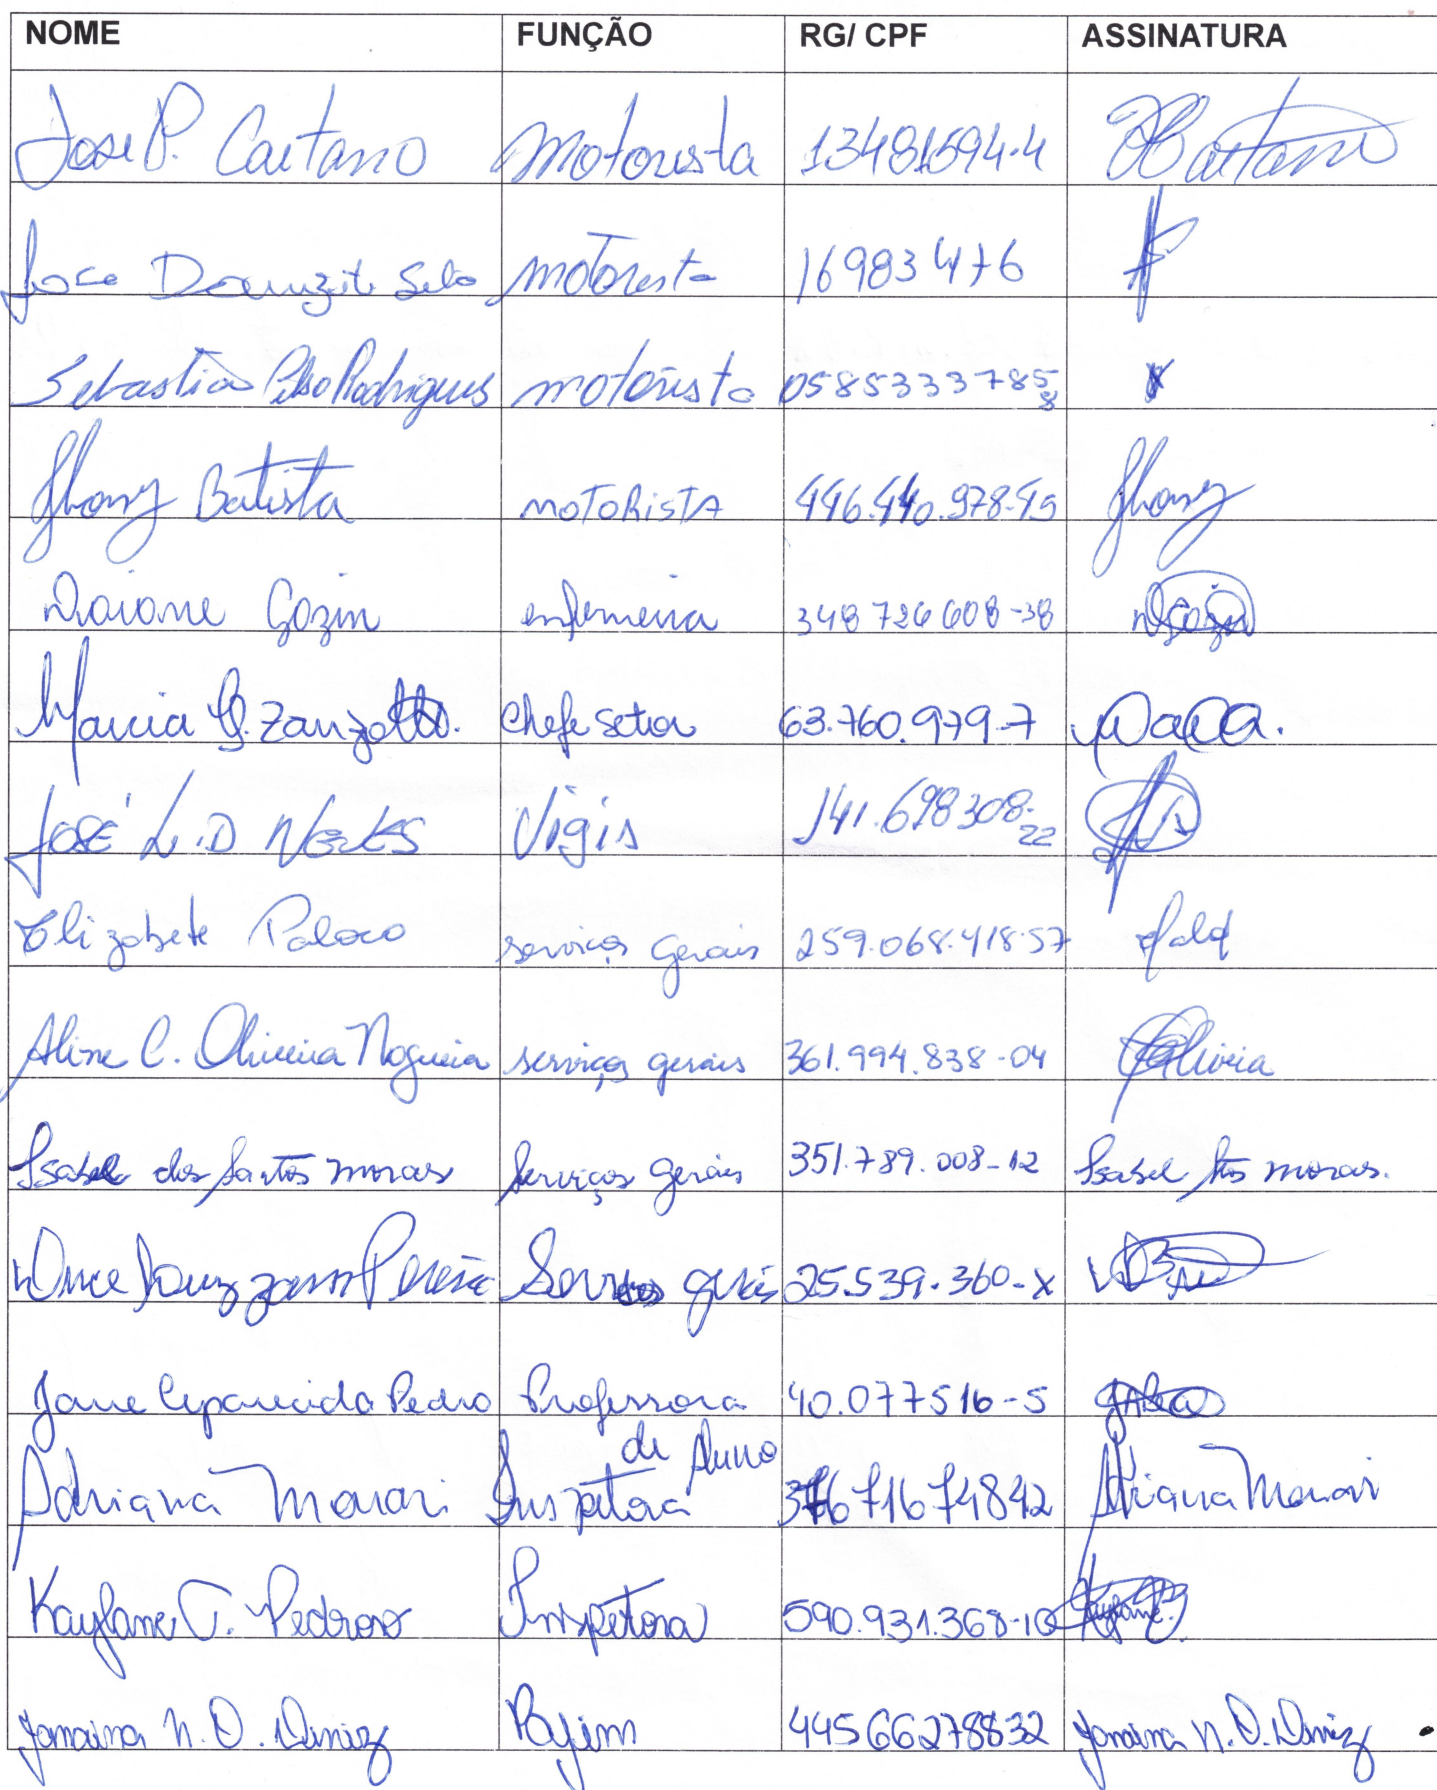 NOME FUNÇÃO RG/ CPF ASSINATURA
José P. Caetano Motorista 13481594-4 Caetano
Jose Motorista 16983476
Sebastião Rodrigues motorista 05853337858
Jhony Batista MOTORISTA 446.440.978-45 Jhony
Daiane Gozin enfermeira 348 726 608-38
Marcia G. Zanzotto. Chefe setor 63.760.979-7
JOSÉ L.D NEVES Vigia 141.698308-22
Elizabete serviços gerais 259.068.418-57
Aline C. Oliveira Nogueira serviços gerais 361.994.838-04 Oliveira
Isabel dos Santos morais Serviços gerais 351.789.008-12 Isabel Stos morais.
Pereira gerais 25.539.360-X
Jane Aparecida Pedro Professora 40.077516-5
Adriana Morari Inspetora de Aluno 716 74842 Adriana Morari
Kayfane T. Pedroso Inspetora 590.931.368-10 Kayfane
Janaina N. O. Diniz Pajem 44566278832 Janaina N. O. Diniz